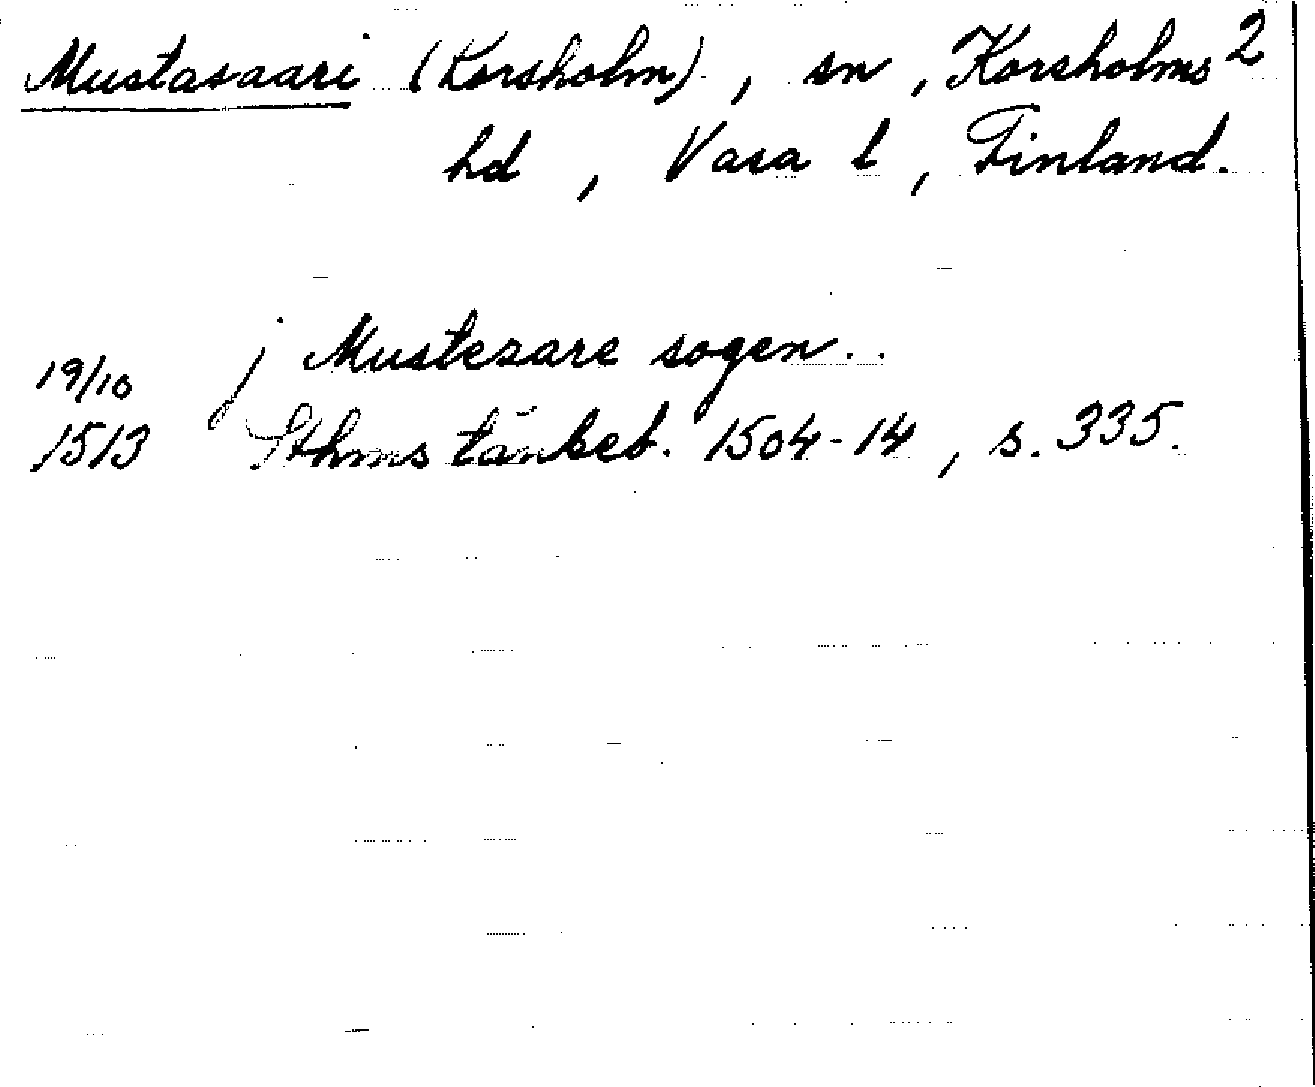 Mustasaari (Korsholm), sn, Korsholms 2
hd, Vasa l, Finland.
19/10 j Mustesare sogen..
1513 Sthms tänkeb. 1504-14, s. 335.